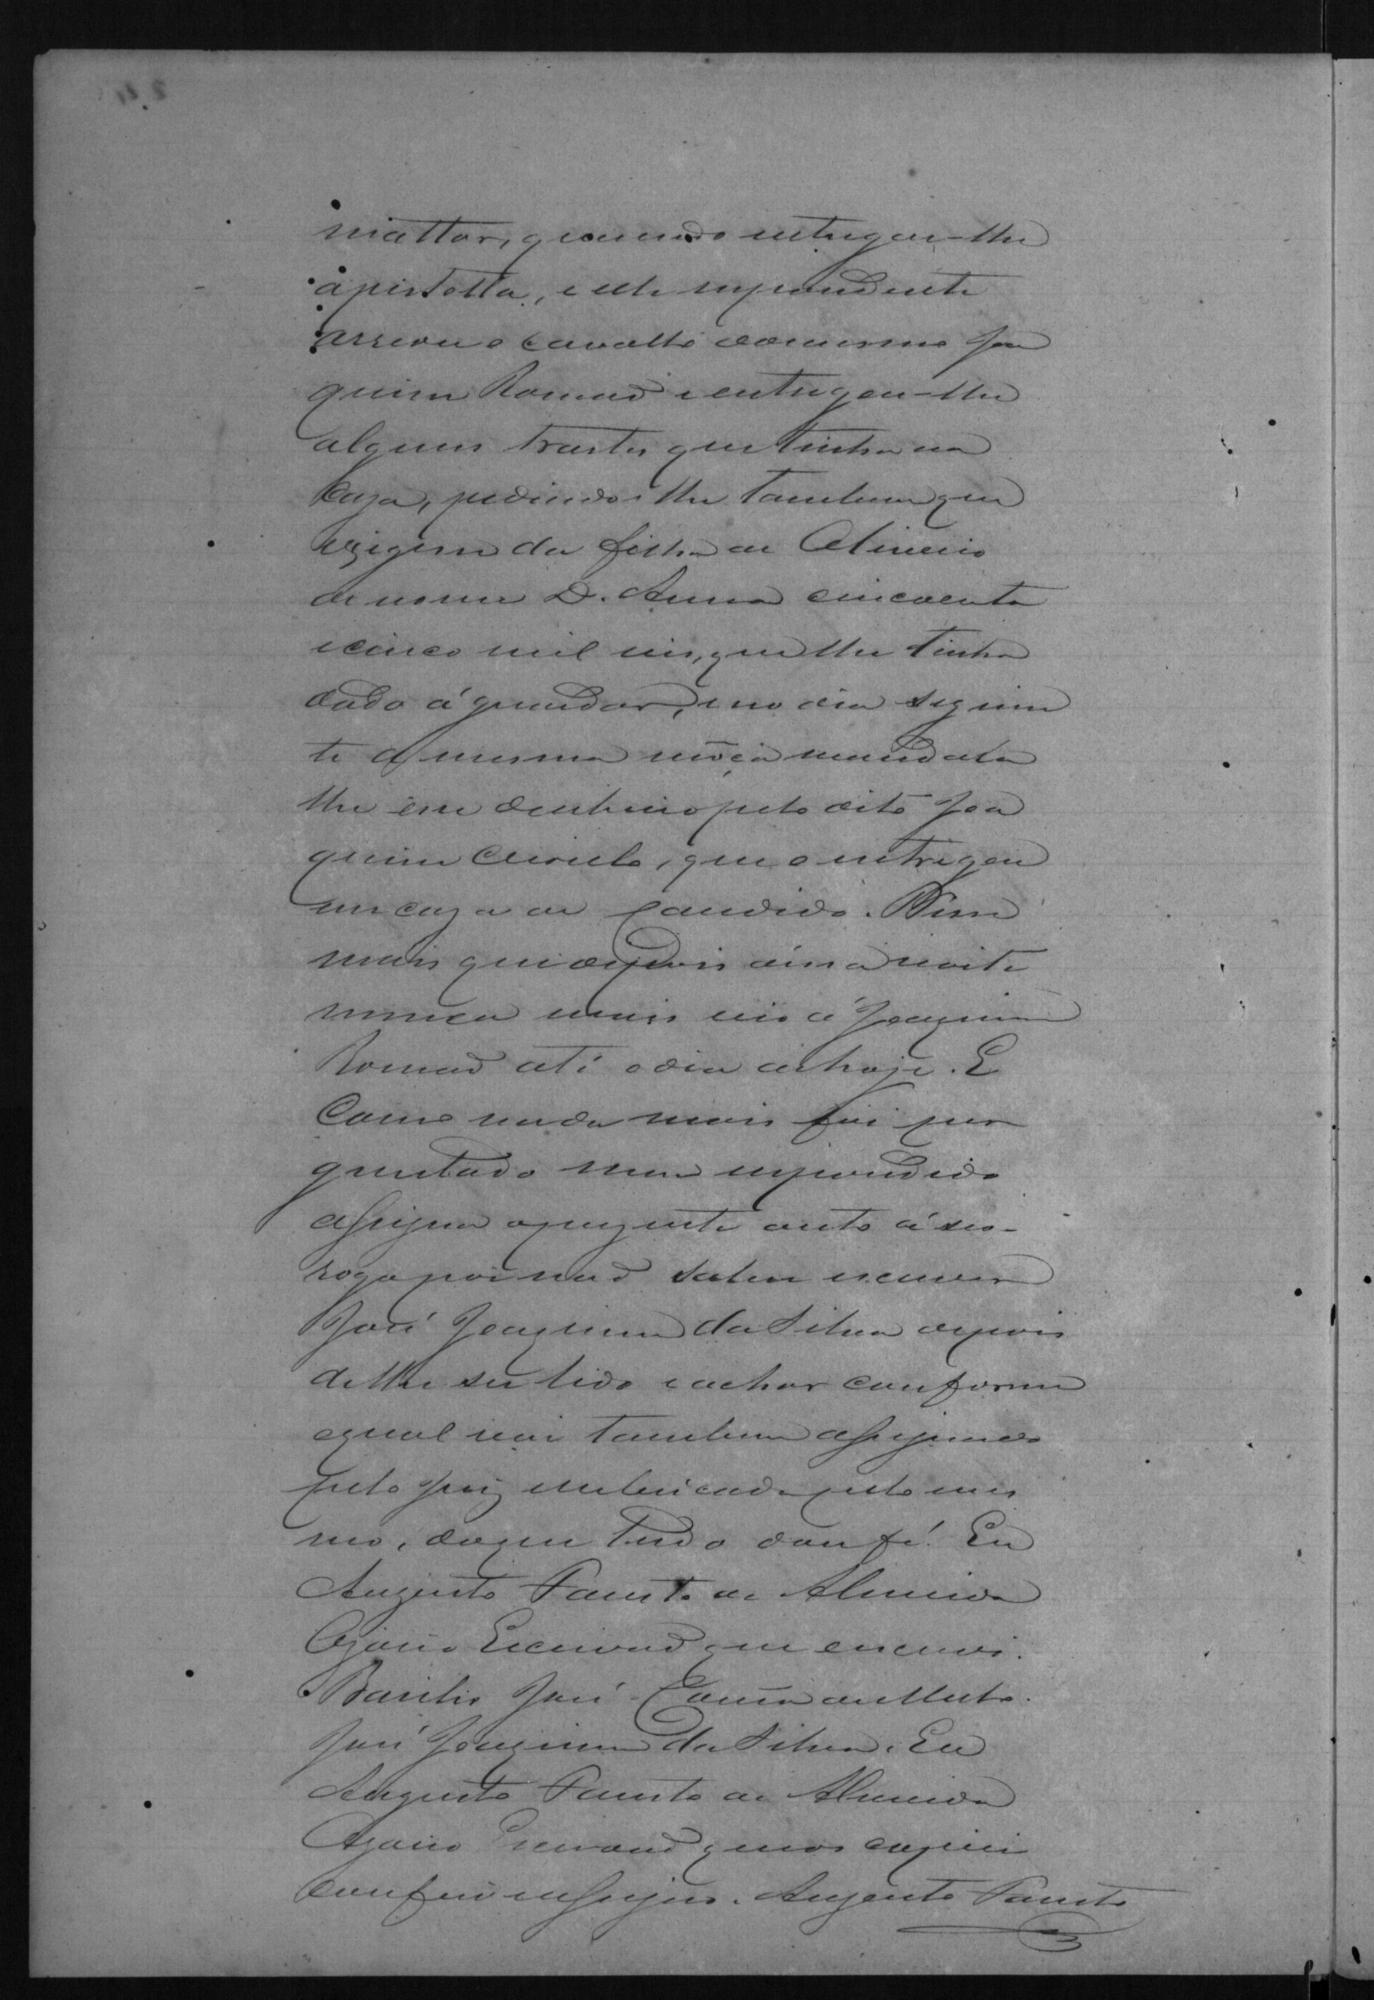 mattar, quando entregou-lhe
a pistolla, e elle respondente
arreou o cavallo do mesmo Joa
quim Romaõ e entregou-lhe
alguns trastes que tinha na
Caza, pedindo-lhe tambem que
exigisse da filha de Olinerio
de nome D. Anna cincoenta
e cinco mil reis, que lhe tinha
dado á guardar, e no dia seguin
te a mesma môça mandára
lhe esse dinheiro pelo dito Joa
quim Crioulo, que o entregou
em caza de Candido. Disse
mais que depois dessa noite
nunca mais vio á Joaquim
Romaõ até o dia de hoje. E
Como nada mais foi per
guntado nem respondido
assigna o prezente auto á seo
rogo por naõ saber escrever
José Joaquim da Silva depois
de lhe ser lido e achar conforme
o qual vai tambem assignado
pelo Juiz e rubricado pelo mes
mo, do que tudo dou fé. Eu
Augusto Fausto de Almeida
Ozorio Escrivaõ que escrevi.
Basilio José Corrêa de Mello.
José Joaquim da Silva. Eu
Augusto Fausto de Almeida
Ozorio Escrivaõ que os copiei
conferi e assigno. Augusto Fausto